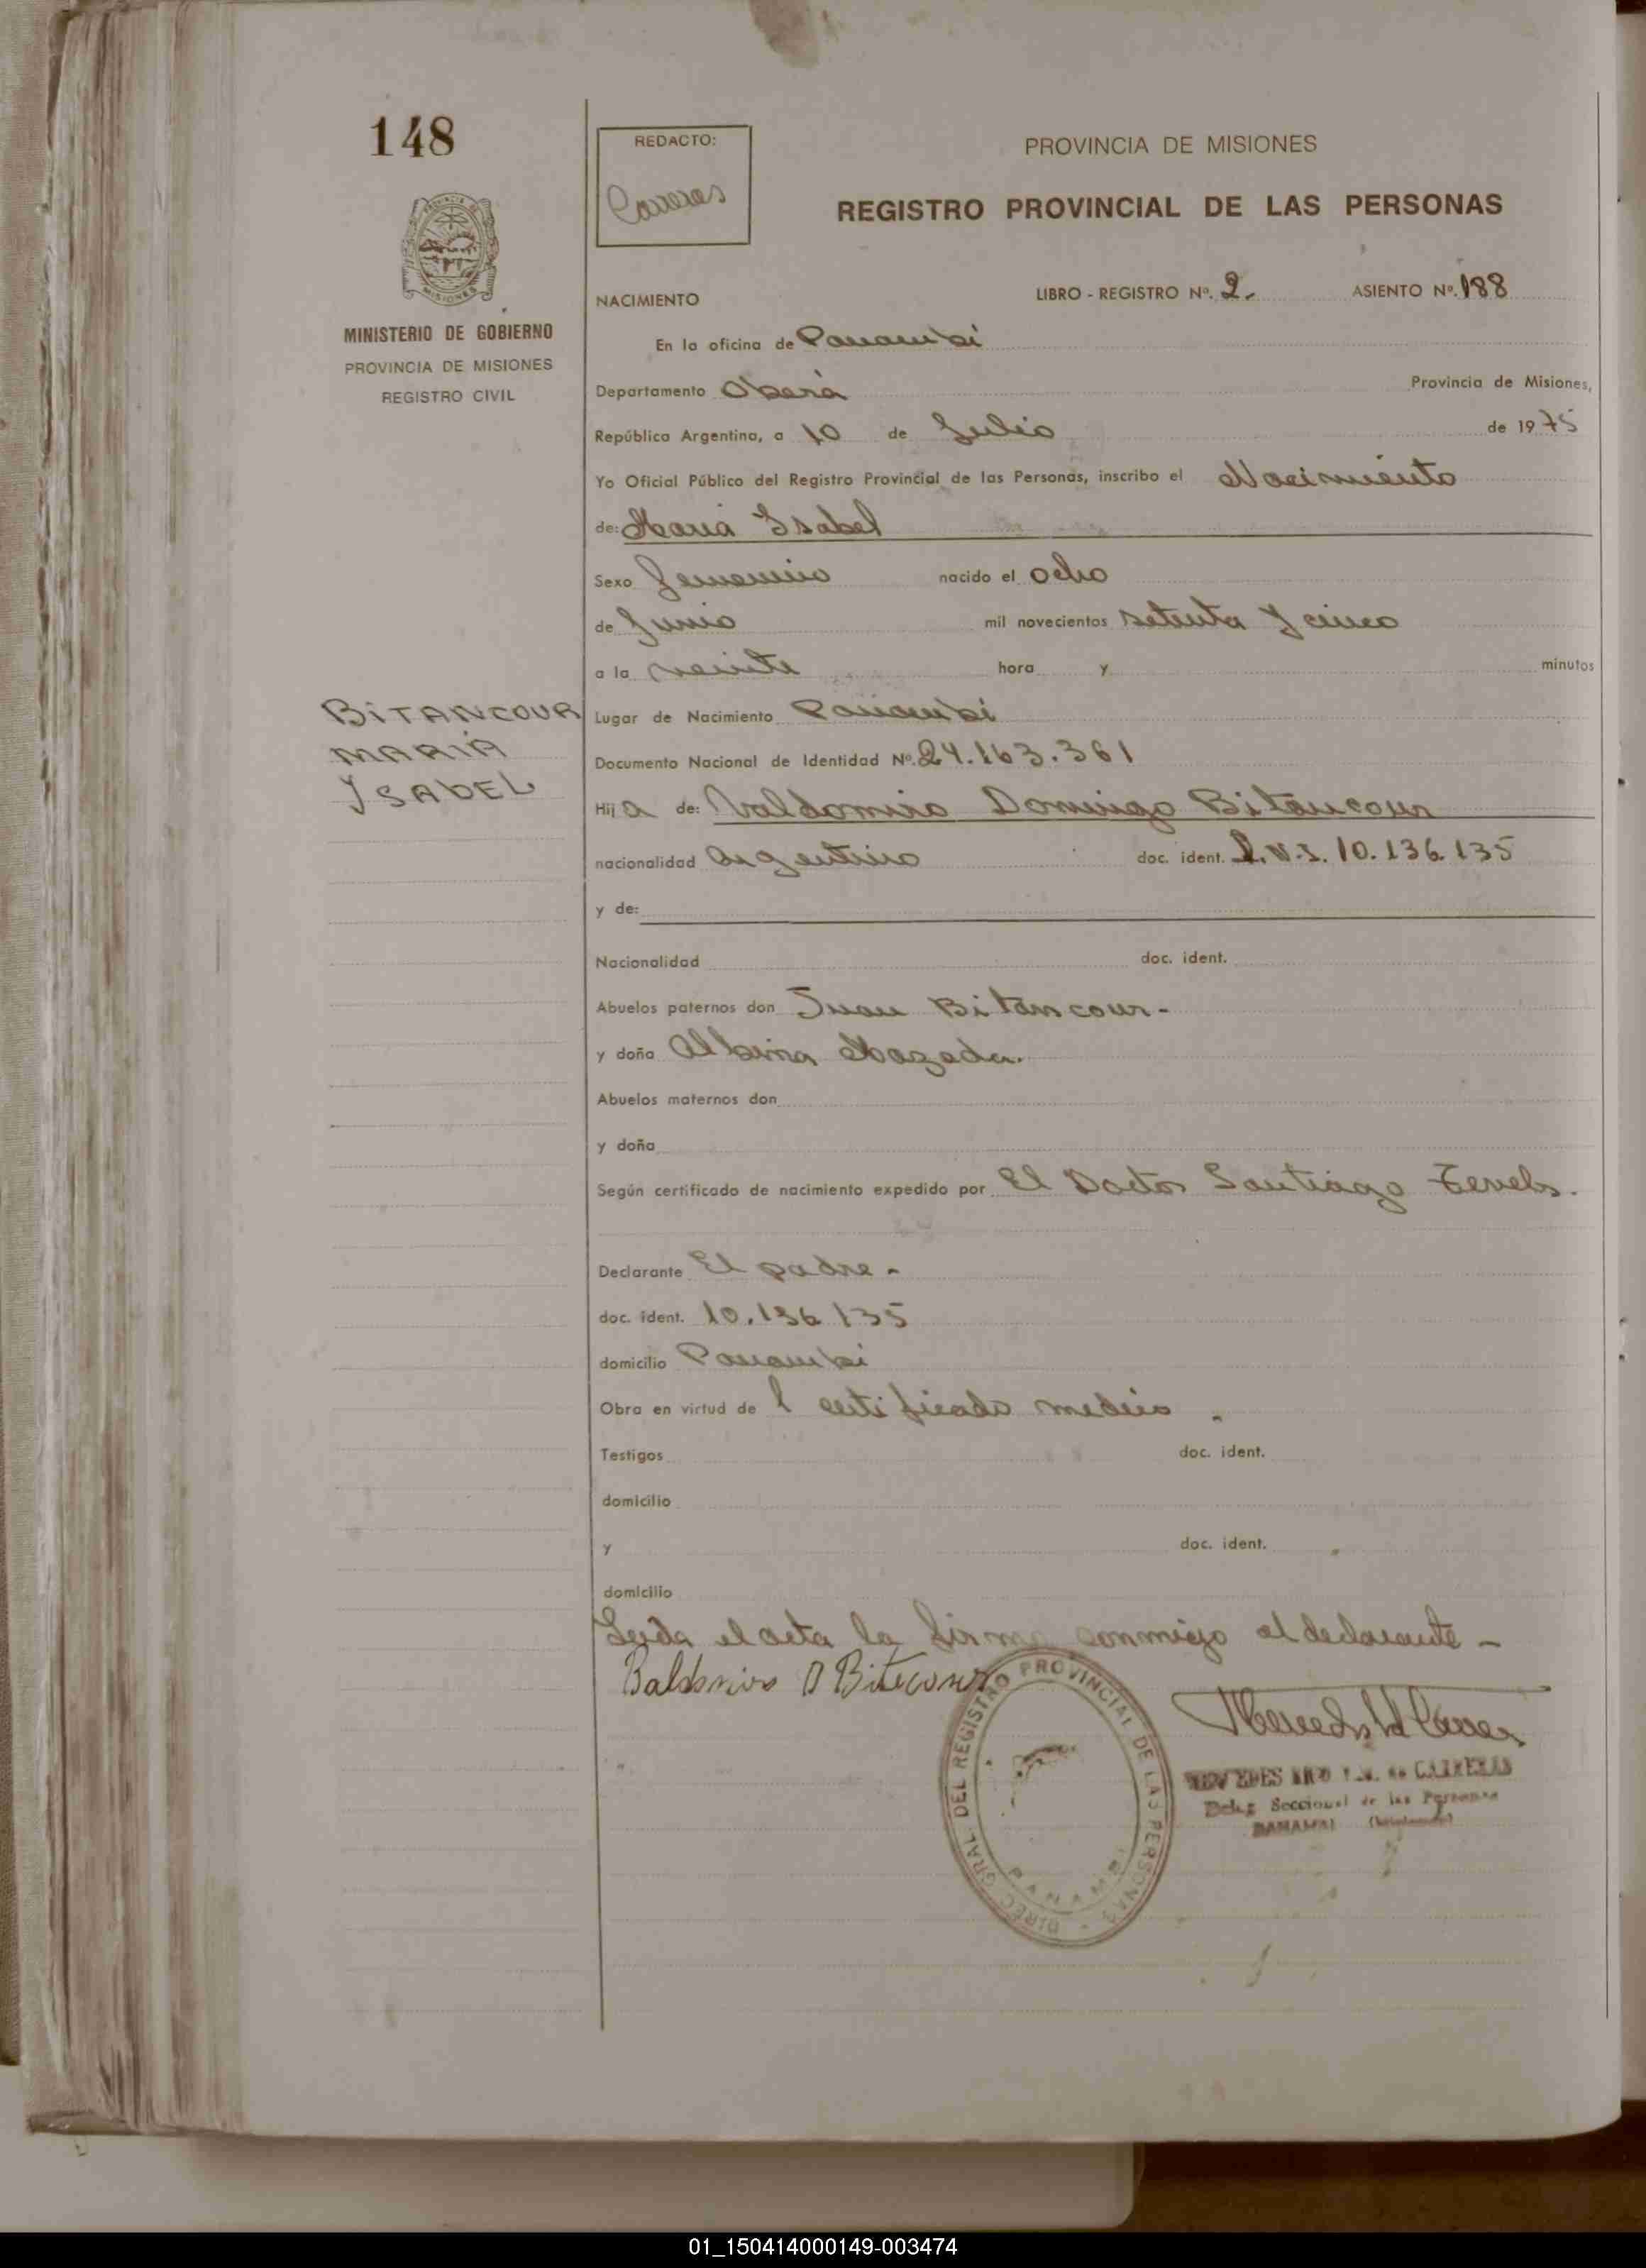 148
REDACTO:
Carreras
PROVINCIA DE MISIONES
REGISTRO PROVINCIAL DE LAS PERSONAS
MISIONES
MINISTERIO DE GOBIERNO
PROVINCIA DE MISIONES
REGISTRO CIVIL
NACIMIENTO
LIBRO - REGISTRO Nº. 2.
ASIENTO Nº. 188
En la oficina de Panambi
Departamento Oberá Provincia de Misiones,
República Argentina, a 10 de Julio de 1975
Yo Oficial Público del Registro Provincial de las Personas, inscribo el Nacimiento
de: Maria Isabel
Sexo Femenino nacido el ocho
de Junio mil novecientos setenta y cinco
a la veinte hora y minutos
BiTANCOUR
MARIA
YSABEL
Lugar de Nacimiento Panambi
Documento Nacional de Identidad Nº. 24.163.361
Hija de: Valdomiro Domingo Bitancour
nacionalidad Argentino doc. ident. D.N.I. 10.136.135
y de:
Nacionalidad doc. ident.
Abuelos paternos don Juan Bitancour-
y doña Albina
Abuelos maternos don
y doña
Según certificado de nacimiento expedido por El Doctor Santiago
Declarante El padre-
doc. ident. 10.136 135
domicilio Panambi
Obra en virtud de l certificado medico.
Testigos doc. ident.
domicilio
y doc. ident.
domicilio
Leida el acta la firma conmigo el declarante-
DIREC. GRAL. DEL REGISTRO PROVINCIAL DE LAS PERSONAS
PANAMBI
de CARRERAS
Deleg. Seccional de las Personas
PANAMBI (Misiones)
01_150414000149-003474